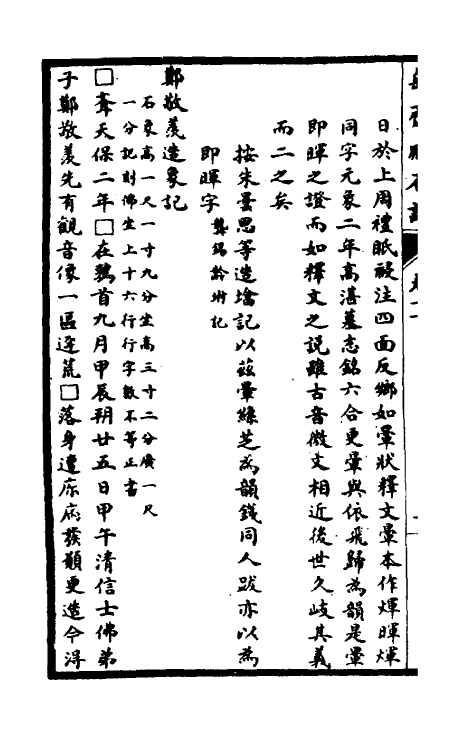 日於上周禮眂祲注四面反鄉如暈狀釋文暈本作煇暉煇
同字元象二年高湛墓志銘六合更暈與依飛歸為韻是暈
即暉之證而如釋文之説雖古音微文相近後世久歧其義
而二之矣
按朱曇思等造墖記以茲暈緣芝為韻錢同人跋亦以為
即暉字 龔錫齡坿記
鄭敬羨造象記
石象高一尺一寸九分坐高三寸二分廣一尺
一分記刻佛坐上十六行行字數不等正書
□夆天保二年□在鶉首九月甲辰朔廿五日甲午清信士佛弟
子鄭敬羨先有觀音像一區迳荒□落身遭疹疾發願更造今得